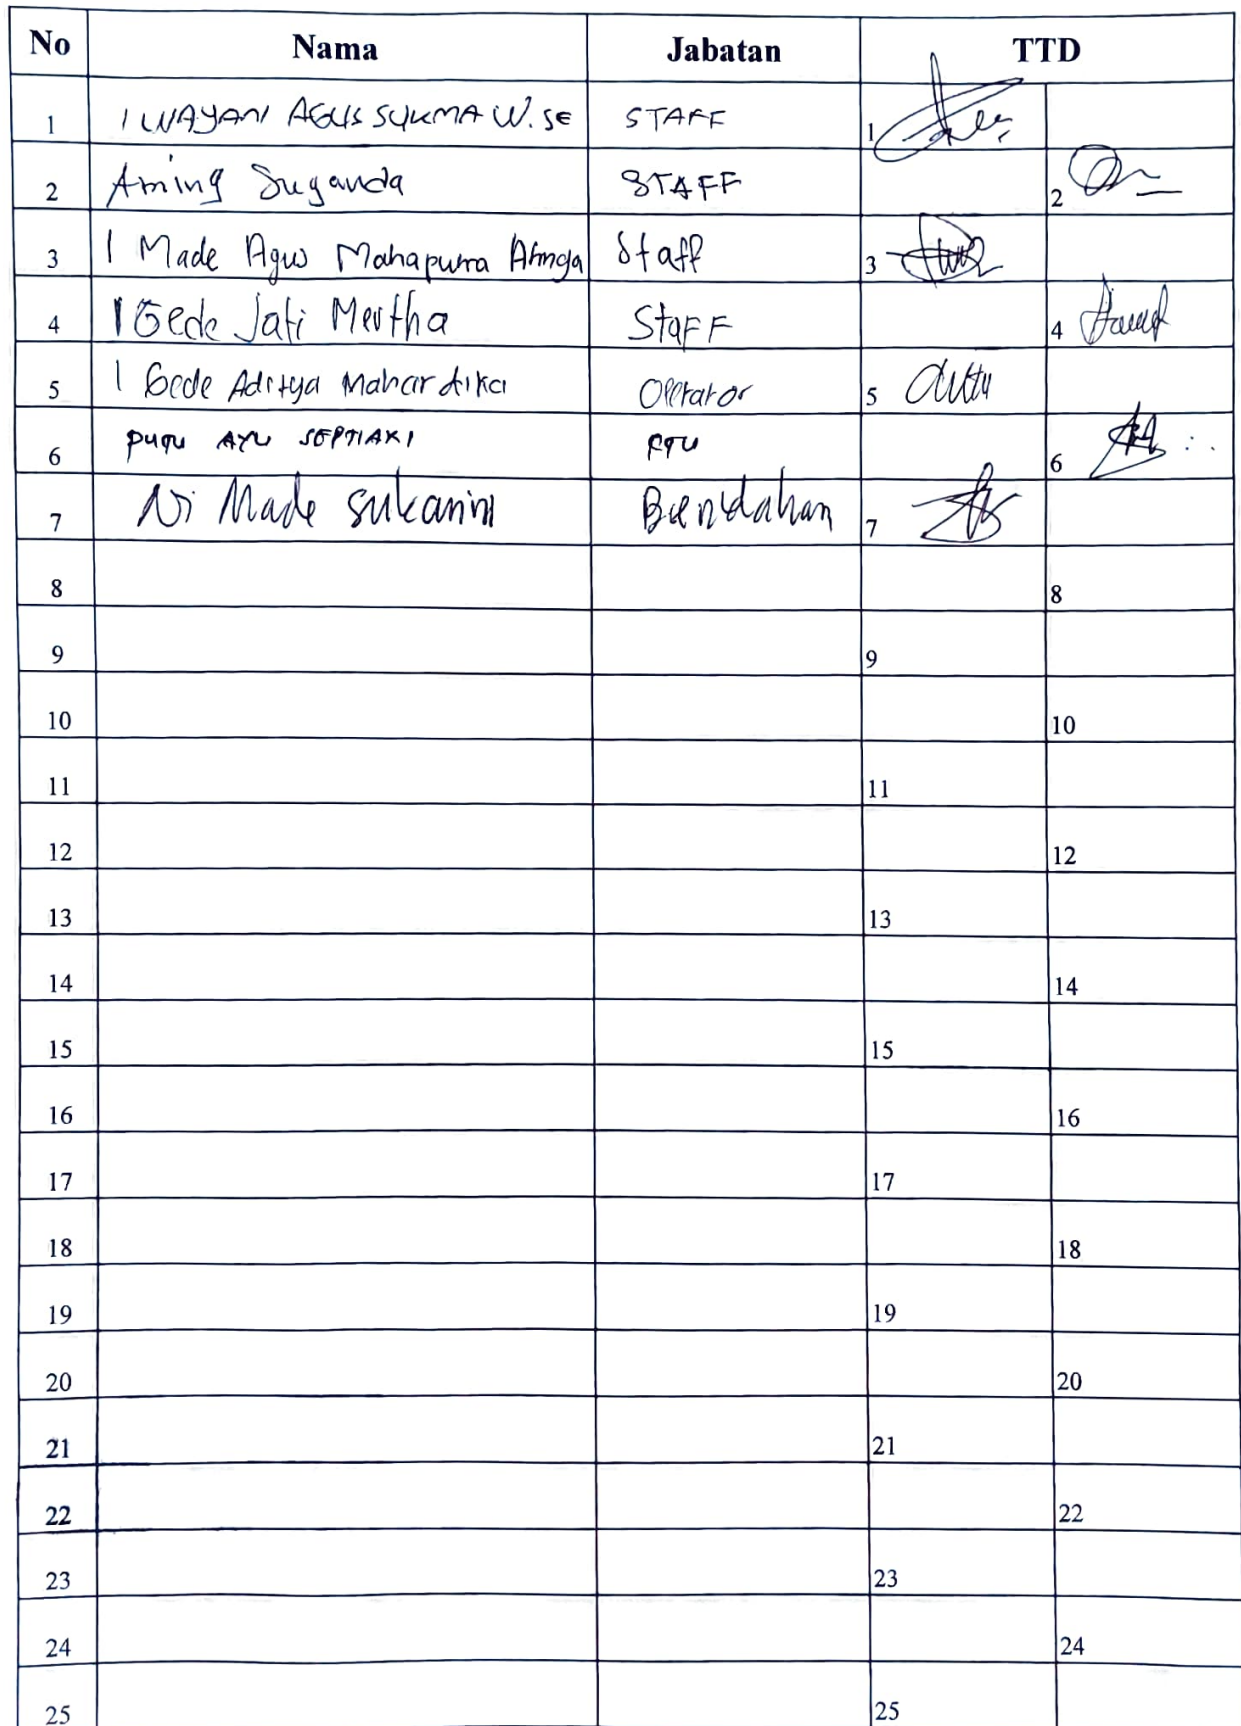 No Nama Jabatan TTD
1 I WAYAN AGUS SUKMA W. SE STAFF 1
2 Aming Suganda STAFF 2
3 I Made Agus Mahaputra Staff 3
4 I Gede Jati Mertha Staff 4
5 I Gede Aditya Mahardika Operator 5
6 PUTU AYU SEPTIAKI 6
7 Ni Made Sukarini 7
8 8
9 9
10 10
11 11
12 12
13 13
14 14
15 15
16 16
17 17
18 18
19 19
20 20
21 21
22 22
23 23
24 24
25 25